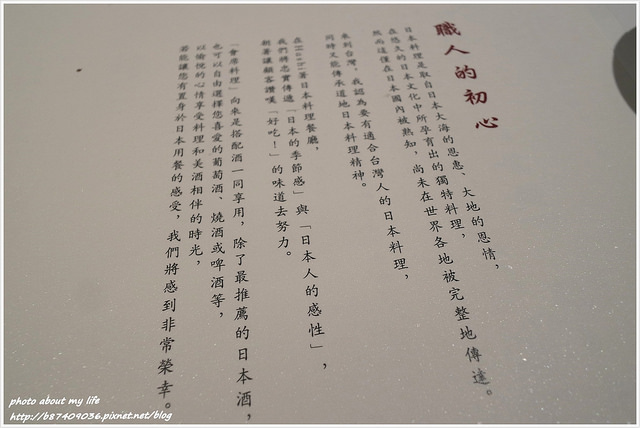 職人的初心
日本料理是取自日本大海的恩惠、大地的恩情,
在悠久的日本文化中所孕育出的獨特料理,
然而這僅在日本國內被熟知,尚未在世界各地被完整地傳達。
來到台灣,我認為要有適合台灣人的日本料理,
同時又能傳承道地日本料理精神。
在Hashi箸日本料理餐廳,
我們將忠實傳遞「日本的季節感」與「日本人的感性」,
朝著讓顧客讚嘆「好吃!」的味道去努力。
「會席料理」向來是搭配酒一同享用,除了最推薦的日本酒,
也可以自由選擇您喜愛的葡萄酒、燒酒或啤酒等,
以愉悅的心情享受料理和美酒相伴的時光,
若能讓您有置身於日本用餐的感受,我們將感到非常榮幸。
photo about my life
http://b87409036.pixnet.net/blog